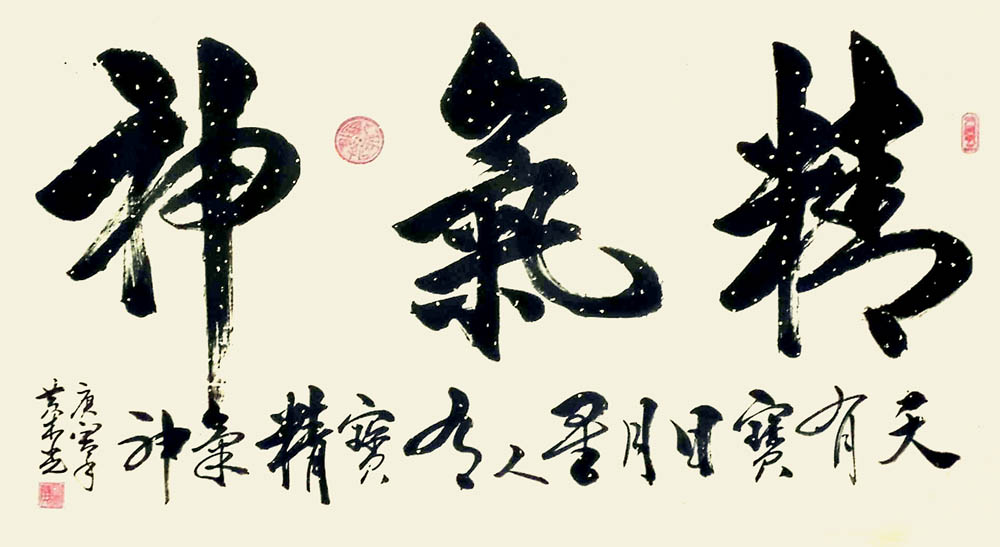 精氣神
天有寶日月星人有寶精氣神
庚寅年